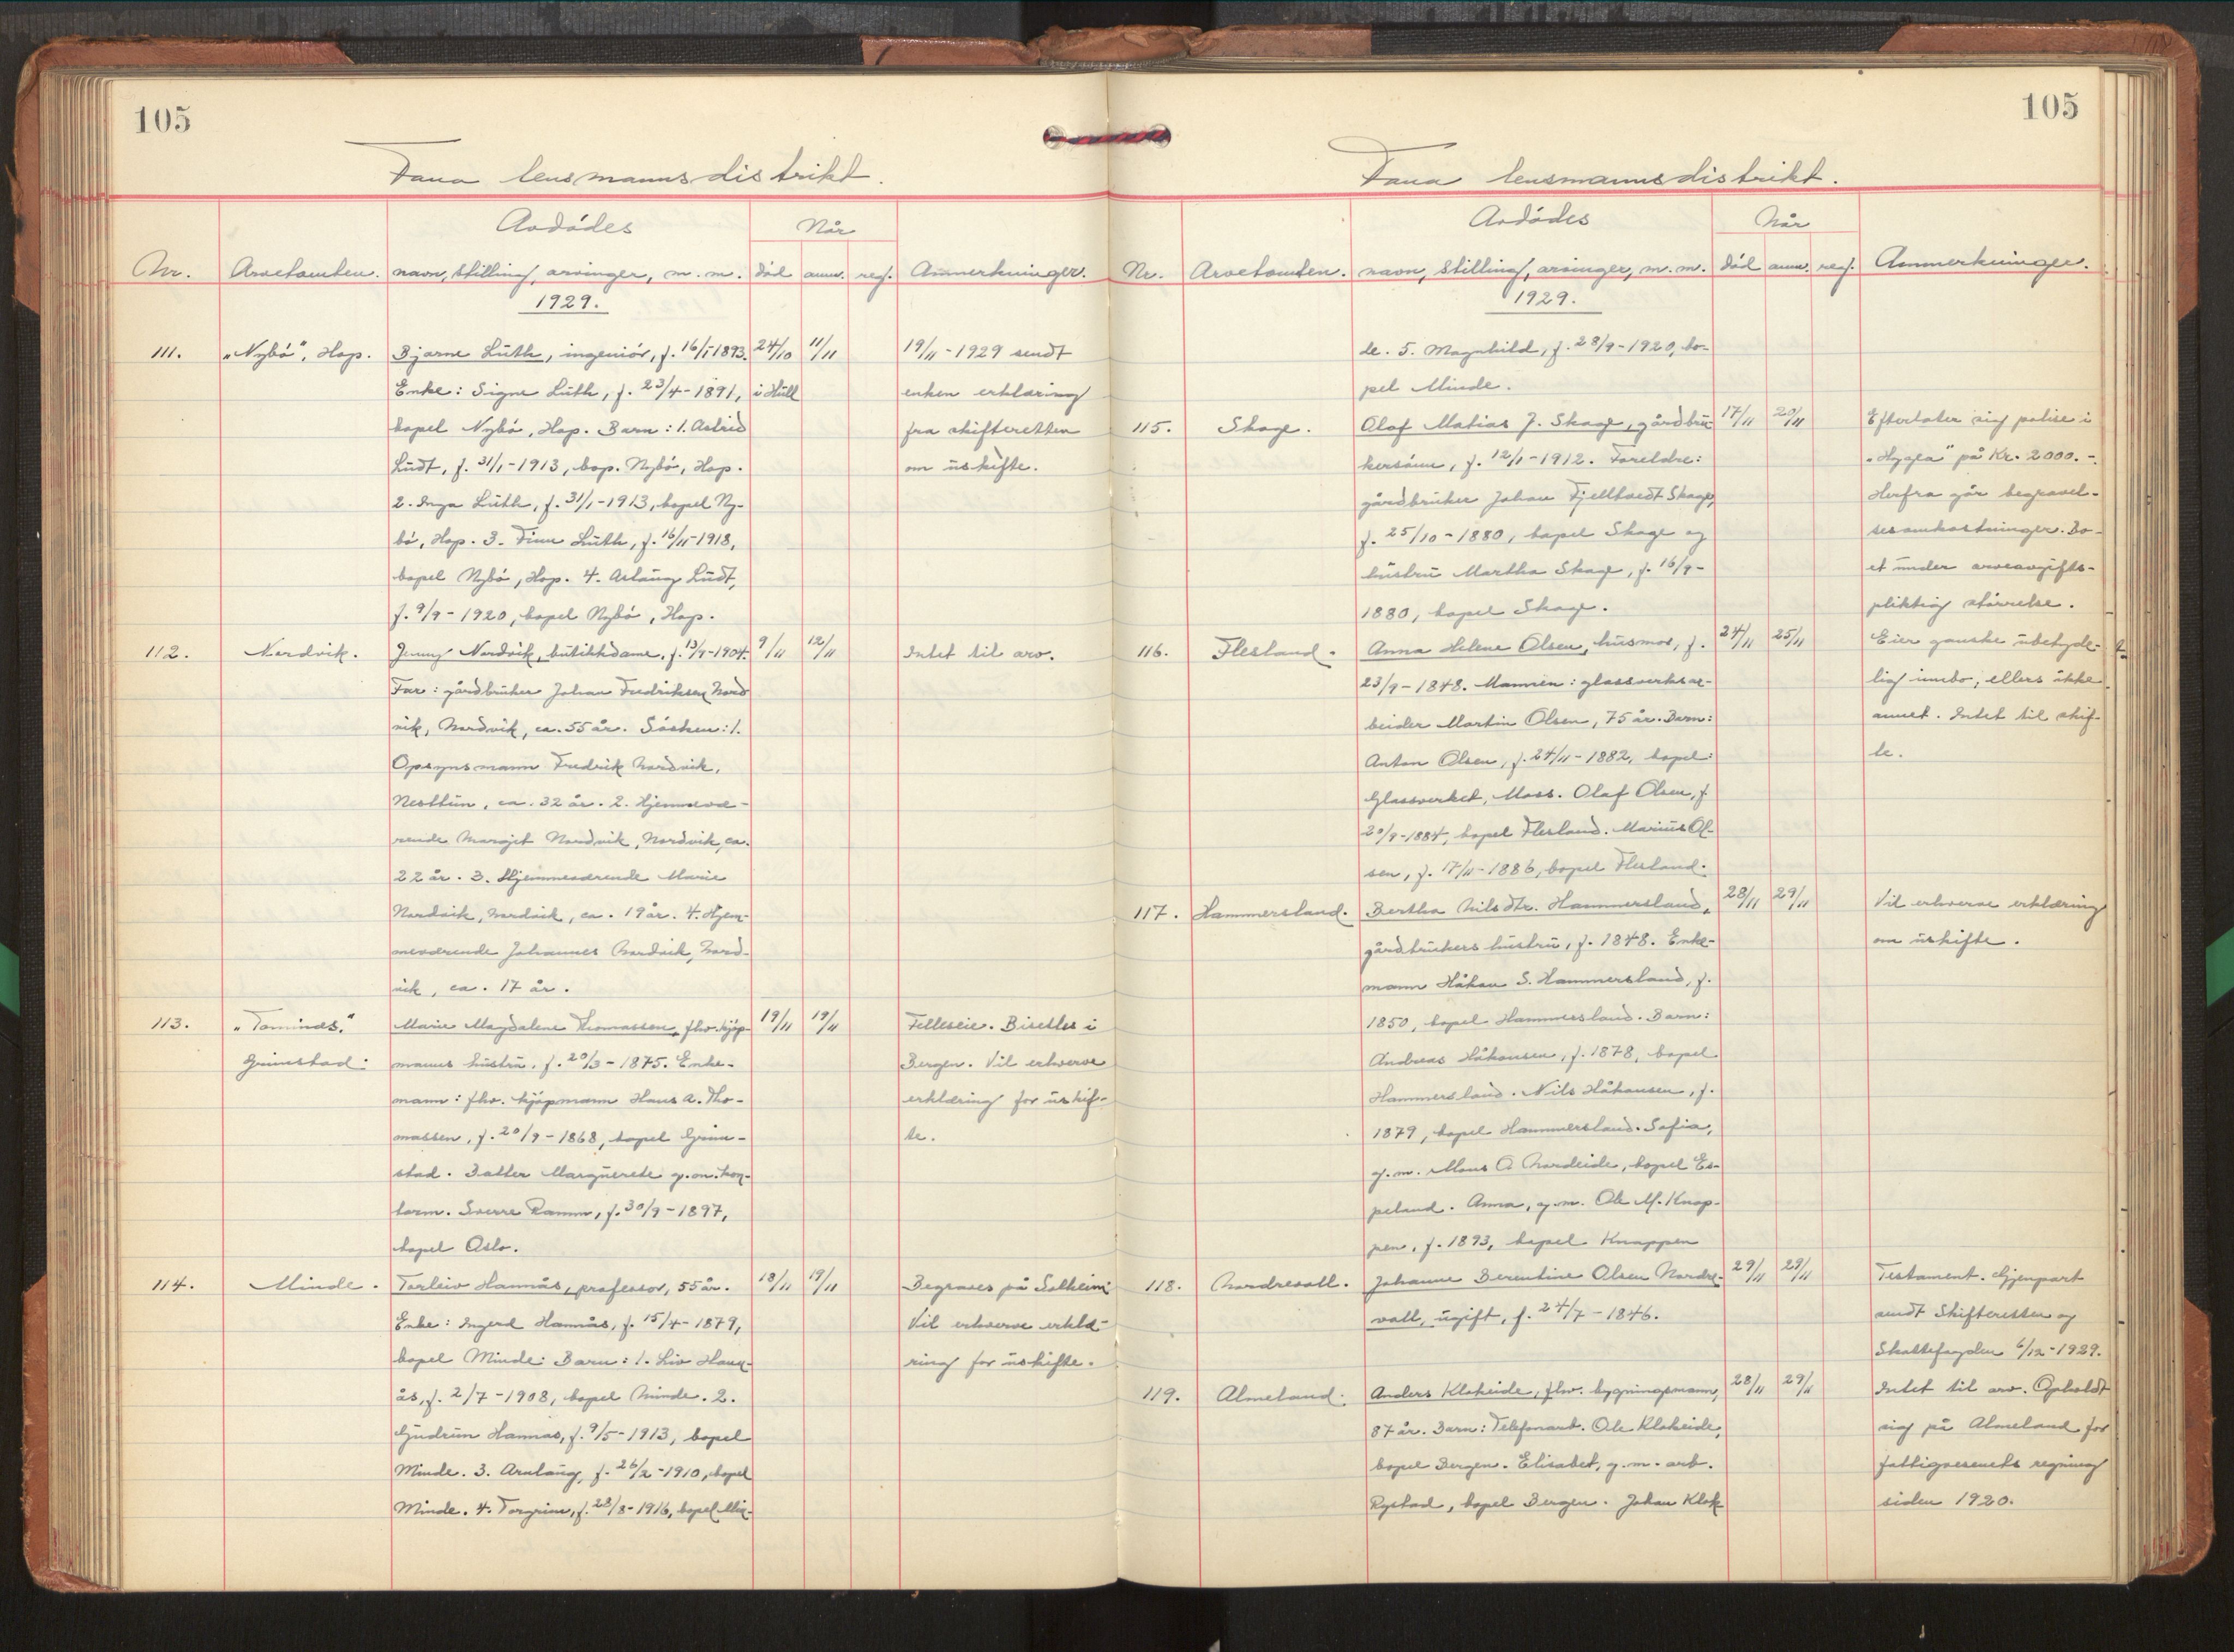 105
Fana lensmannsdistrikt.
Avdødes
Når
Nr.
Arvetomten.
navn, stilling, arvinger, m. m.
død
anm.
reg.
Anmerkninger.
1929.
111.
"Nybø", Hop.
Bjarne Lüth, ingeniør, f. 16/1 1893.
24/10
11/11
19/11-1929 sendt
Enke: Signe Lüth, f. 23/4-1891,
i Hull
enken erklæring
bopel Nybø, Hop. Barn: 1. Astrid
fra skifteretten
Lüdt, f. 31/1-1913, bop. Nybø, Hop.
om uskifte.
2. Inga Lüth, f. 31/1-1913, bopel Ny-
bø, Hop. 3. Finn Lüth, f. 16/11-1918,
bopel Nybø, Hop. 4. Aslaug Lüdt,
f. 9/9-1920, bopel Nybø, Hop.
112.
Nordvik.
Jenny Nordvik, butikkdame, f. 13/9-1904.
9/11
12/11
Intet til arv.
Far: gårdbruker Johan Fredriksen Nord
vik, Nordvik, ca. 55 år. Søsken: 1.
Opsynsmann Fredrik Nordvik,
Nesttun, ca. 32 år. 2. Hjemmevæ-
rende Margit Nordvik, Nordvik, ca.
22 år. 3. Hjemmeværende Marie
Nordvik, Nordvik, ca. 19 år. 4. Hjem-
meværende Johannes Nordvik, Nord-
vik, ca. 17 år.
113.
Marie Magdalene Thomassen, fhv. kjøp-
19/11
19/11
Felleseie. Bisettes i
Grimstad.
manns hustru, f. 20/3-1875. Enke-
Bergen. Vil erhverve
mann: fhv. kjøpmann Hans A. Tho-
erklæring for uskif-
massen, f. 20/9-1868, bopel Grim-
te.
stad. Datter Marguerete g. m. kon-
torm. Sverre Ramm, f. 30/9-1897,
bopel Oslo.
114.
Minde.
Torleiv Hannås, professor, 55 år.
18/11
19/11
Begraves på Solheim.
Enke: Ingerd Hannås, f. 15/4-1879,
Vil erhverve erklæ-
bopel Minde. Barn: 1. Liv Hann-
ring for uskifte.
ås, f. 2/7-1908, bopel Minde. 2.
Gudrun Hannas, f. 9/5-1913, bopel
Minde. 3. Arnlaug, f. 26/2-1910, bopel
Minde. 4. Torgrim, f. 28/8-1916, bopel Min-
105
Fana lensmannsdistrikt.
Avdødes
Når
Nr.
Arvetomten.
navn, stilling, arvinger, m. m.
død
anm.
reg.
Anmerkninger.
1929.
de. 5. Magnhild, f. 28/9-1920, bo-
pel Minde.
115.
Skage.
Olaf Matias J. Skage, gårdbru-
17/11
20/11
Efterlater sig polise i
kersønn, f. 12/1-1912. Foreldre:
"Hygea" på Kr. 2000.-.
gårdbruker Johan Fjelltvedt Skage,
Herfra går begravel-
f. 25/10-1880, bopel Skage og
sesomkostninger. Bo-
hustru Martha Skage, f. 16/9-
et under arveavgifts-
1880, bopel Skage.
pliktig størrelse.
116.
Flesland.
Anna Helene Olsen, husmor, f.
24/11
25/11
Eier ganske ubetyde-
23/9-1848. Mannen: glassverksar-
lig innbo, ellers ikke
beider Martin Olsen, 75 år. Barn:
annet. Intet til skif-
Anton Olsen, f. 24/11-1882, bopel
te.
Glassverket, Moss. Olaf Olsen, f.
20/9-1884, bopel Flesland. Marius Ol-
sen, f. 17/11-1886, bopel Flesland.
117.
Hammersland.
Bertha Nilsdtr. Hammersland,
28/11
29/11
Vil erhverve erklæring
gårdbrukers hustru, f. 1848. Enke-
om uskifte.
mann Håkon S. Hammersland, f.
1850, bopel Hammersland. Barn:
Andreas Håkonsen, f. 1878, bopel
Hammersland. Nils Håkonsen, f.
1879, bopel Hammersland. Sofia,
g. m. Mons O Nordeide, bopel Es-
peland. Anna, g. m. Ole M. Knap-
pen, f. 1893, bopel Knappen
118.
Nordrevoll.
Johanne Berentine Olsen Nordre-
29/11
29/11
Testament. Gjenpart
voll, ugift, f. 24/7-1846.
sendt Skifteretten og
Skattefogden 6/12-1929.
119.
Almeland.
Anders Klokeide, fhv. bygningsmann,
28/11
29/11
Intet til arv. Opholdt
87 år. Barn: Telefonarb. Ole Klokeide,
sig på Almeland for
bopel Bergen. Elisabet, g. m. arb.
fattigvesenets regning
Rystad, bopel Bergen. Johan Klok
siden 1920.